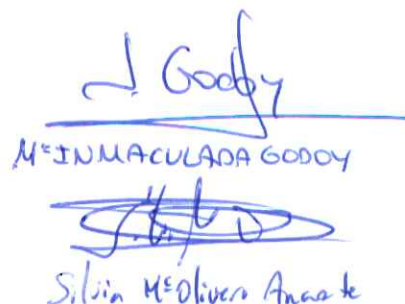 J. Godoy
Mª INMACULADA GODOY
Silvia Mª Olivera